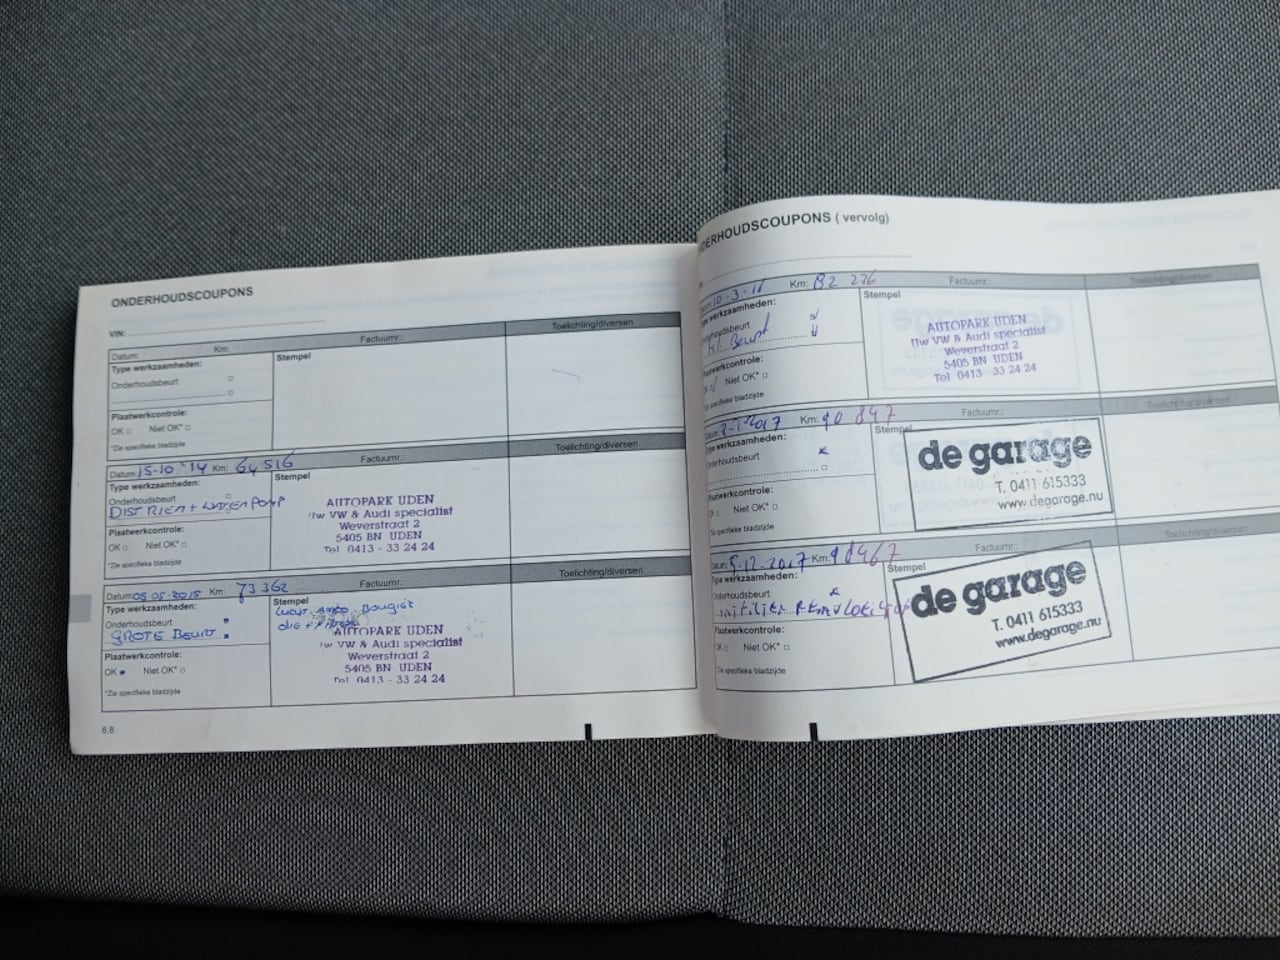 ONDERHOUDSCOUPONS
VIN:
Datum: Km: Factuurnr.: Toelichting/diversen
Type werkzaamheden: Stempel
Onderhoudsbeurt
Plaatwerkcontrole:
OK Niet OK*
*Zie specifieke bladzijde
Datum: 15-10-'14 Km: 64 516 Factuurnr.: Toelichting/diversen
Type werkzaamheden: Stempel
Onderhoudsbeurt
DIST RIEM + WATERPOMP
AUTOPARK UDEN
Uw VW & Audi specialist
Weverstraat 2
5405 BN UDEN
Tel 0413 - 33 24 24
Plaatwerkcontrole:
OK Niet OK*
*Zie specifieke bladzijde
Datum: 05-05-2015 Km: 73 362 Factuurnr.: Toelichting/diversen
Type werkzaamheden: Stempel
Onderhoudsbeurt
GROTE Beurt
Bougies
AUTOPARK UDEN
Uw VW & Audi specialist
Weverstraat 2
5405 BN UDEN
Tel 0413 - 33 24 24
Plaatwerkcontrole:
OK Niet OK*
*Zie specifieke bladzijde
6.8
ONDERHOUDSCOUPONS ( vervolg)
Datum: 10-3-16 Km: 82 276 Factuurnr.: Toelichting/diversen
Type werkzaamheden: Stempel
Onderhoudsbeurt
Kl. Beurt
AUTOPARK UDEN
Uw VW & Audi specialist
Weverstraat 2
5405 BN UDEN
Tel 0413 33 24 24
Plaatwerkcontrole:
OK Niet OK*
*Zie specifieke bladzijde
2017 Km: 90 847 Factuurnr.: Toelichting/diversen
Type werkzaamheden: Stempel
Onderhoudsbeurt
de garage
T. 0411 615333
www.degarage.nu
Plaatwerkcontrole:
OK Niet OK*
*Zie specifieke bladzijde
Datum: 5-12-2017 Km: Factuurnr.: Toelichting/diversen
Type werkzaamheden: Stempel
Onderhoudsbeurt
de garage
T. 0411 615333
www.degarage.nu
Plaatwerkcontrole:
OK Niet OK*
*Zie specifieke bladzijde